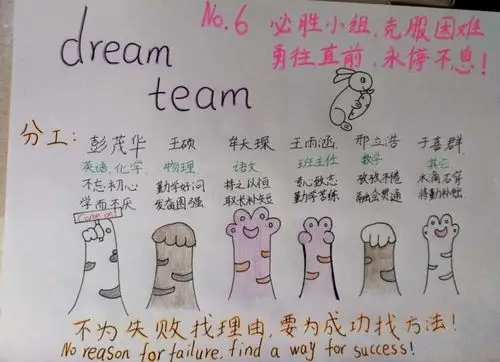 dream
team
No.6 必胜小组,克服困难
勇往直前,永停不息!
分工: 彭茂华 王硕 牟天琛 王雨涵 邢立浩 于喜群
英语、化学 物理 语文 班主任 数学 其它
不忘初心 勤学好问 持之以恒 专心致志 孜孜不倦 水滴石穿
学而不厌 发奋图强 取长补短 勤学苦练 融会贯通 将勤补拙
Come on!
不为失败找理由,要为成功找方法!
No reason for failure, find a way for success!